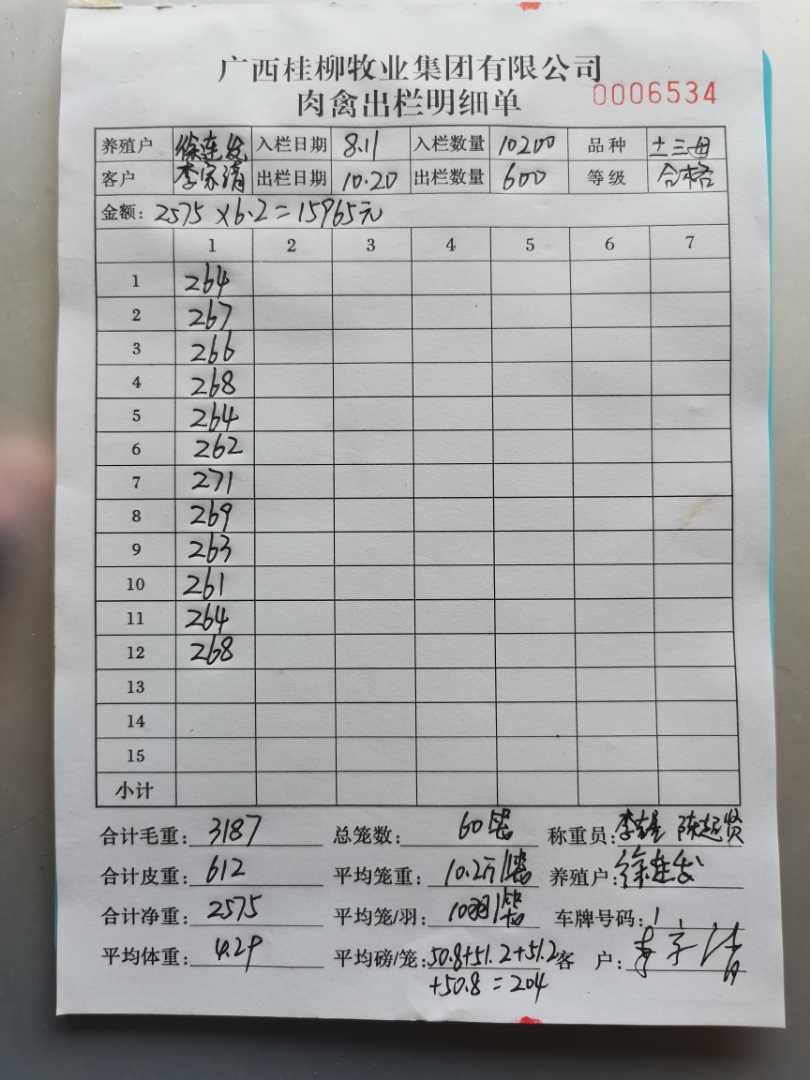 广西桂柳牧业集团有限公司
肉禽出栏明细单
0006534
养殖户 徐连发 入栏日期 8.11 入栏数量 10200 品种 土三母
客户 李家清 出栏日期 10.20 出栏数量 600 等级 合格
金额: 2575×6.2=15965元
1 2 3 4 5 6 7
1 264
2 267
3 266
4 268
5 264
6 262
7 271
8 269
9 263
10 261
11 264
12 268
13
14
15
小计
合计毛重: 3187 总笼数: 60笼 称重员: 陈超贤
合计皮重: 612 平均笼重: 10.2斤/笼 养殖户: 徐连发
合计净重: 2575 平均笼/羽: 10羽/笼 车牌号码: 1
平均体重: 4.29 平均磅/笼: 50.8+51.2+51.2 客 户: 李家清
+50.8=204